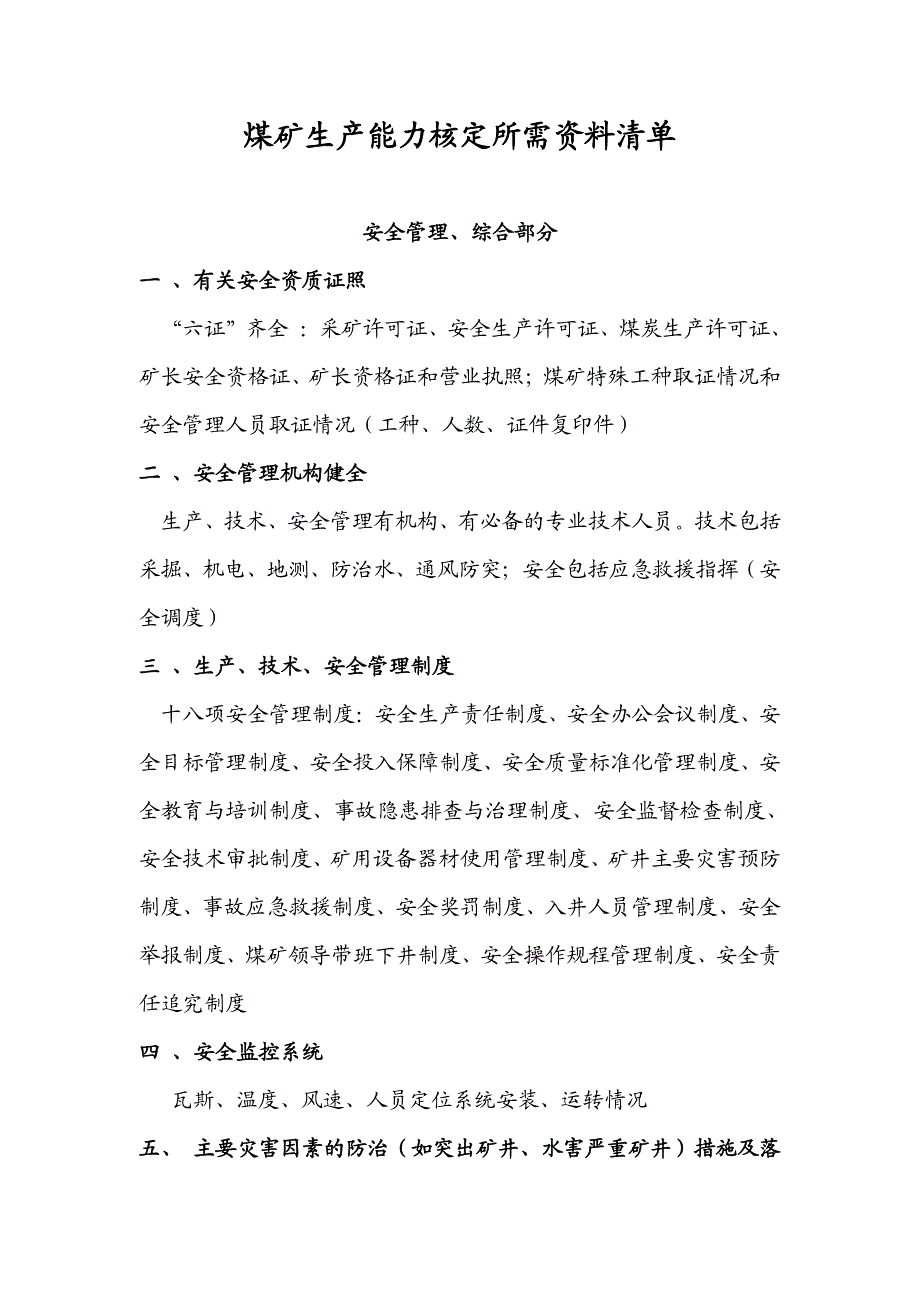 煤矿生产能力核定所需资料清单
安全管理、综合部分
一 、有关安全资质证照
“六证”齐全 ：采矿许可证、安全生产许可证、煤炭生产许可证、
矿长安全资格证、矿长资格证和营业执照；煤矿特殊工种取证情况和
安全管理人员取证情况（工种、人数、证件复印件）
二 、安全管理机构健全
生产、技术、安全管理有机构、有必备的专业技术人员。技术包括
采掘、机电、地测、防治水、通风防突；安全包括应急救援指挥（安
全调度）
三 、生产、技术、安全管理制度
十八项安全管理制度：安全生产责任制度、安全办公会议制度、安
全目标管理制度、安全投入保障制度、安全质量标准化管理制度、安
全教育与培训制度、事故隐患排查与治理制度、安全监督检查制度、
安全技术审批制度、矿用设备器材使用管理制度、矿井主要灾害预防
制度、事故应急救援制度、安全奖罚制度、入井人员管理制度、安全
举报制度、煤矿领导带班下井制度、安全操作规程管理制度、安全责
任追究制度
四 、安全监控系统
瓦斯、温度、风速、人员定位系统安装、运转情况
五、 主要灾害因素的防治（如突出矿井、水害严重矿井）措施及落